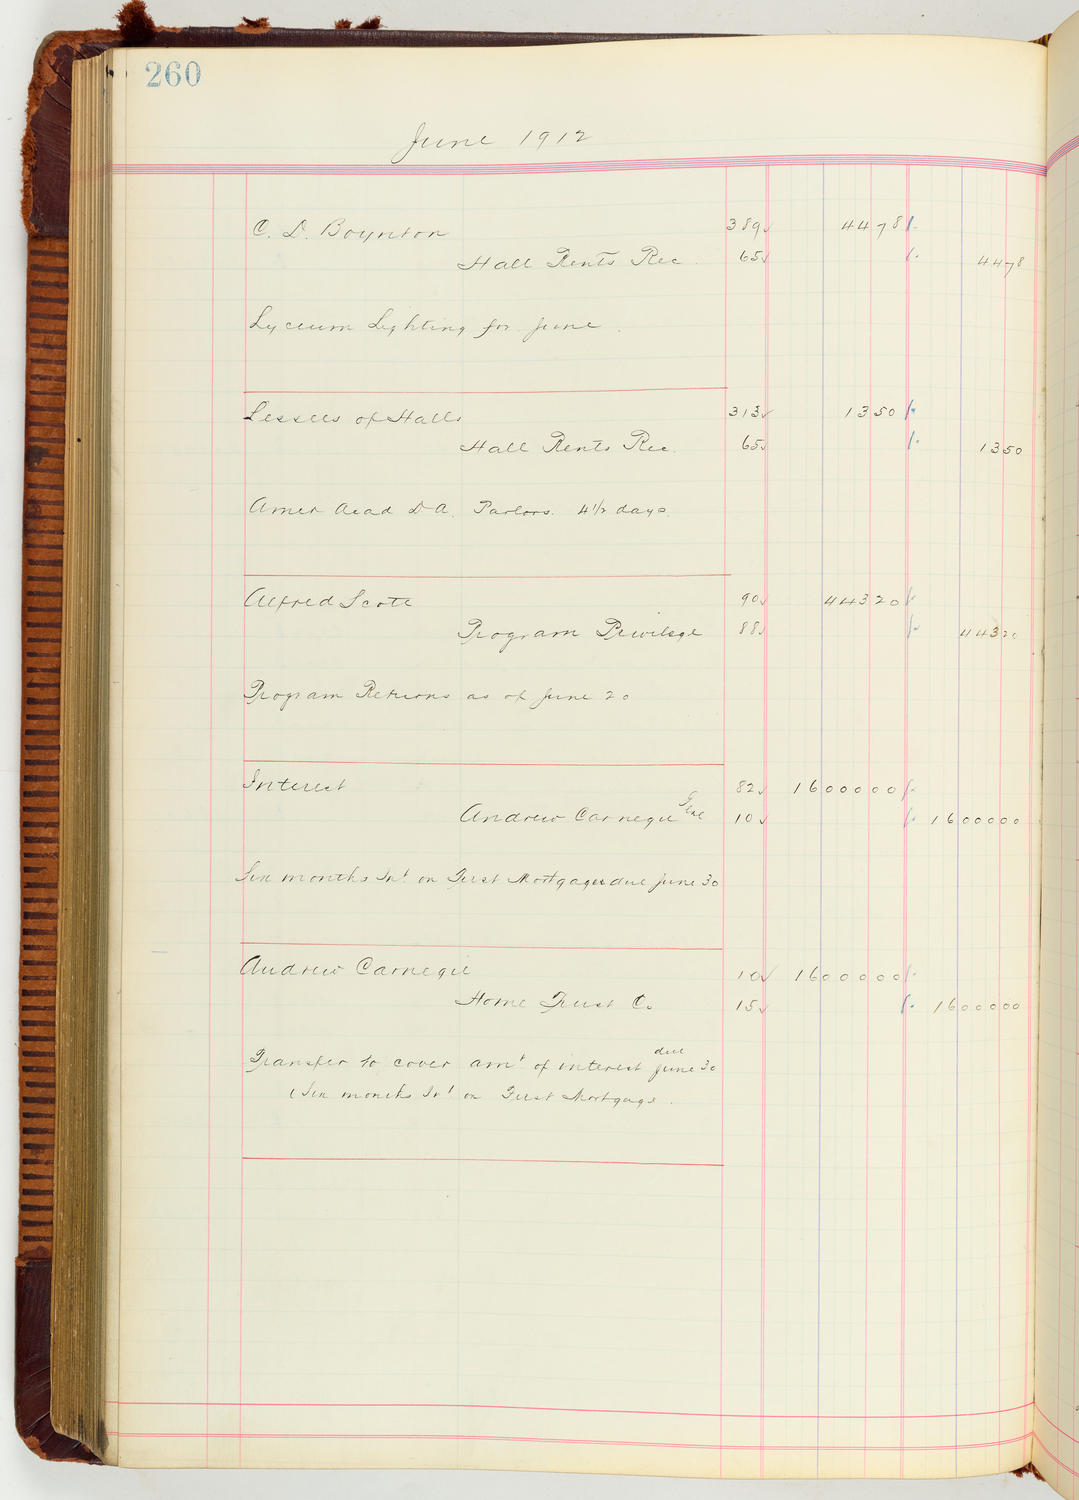 260
June 1912
C. D. Boynton 389✓ 4478
Hall Rents Rec. 65✓ 4478
Lyceum Lighting for June.
Lessees of Halls 313✓ 1350
Hall Rents Rec. 65✓ 1350
Amer Acad D A. Parlors. 4½ days.
Alfred Scott 90✓ 44320
Program Privilege 88✓ 44320
Program Returns as of June 20
Interest 82✓ 1600000
Andrew Carnegie 10✓ 1600000
Six months Int on First Mortgage due June 30
Andrew Carnegie 10✓ 1600000
Home Trust Co 15✓ 1600000
Transfer to cover amt of interest due June 30
(Six months Int on First Mortgage.